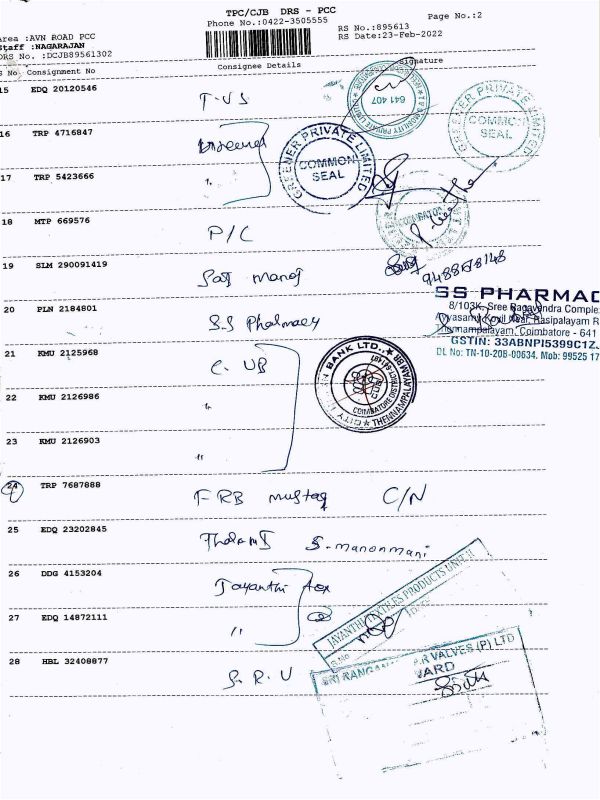 TPC/CJB DRS - PCC
Phone No:0422-3505555
Page No.:2
Area :AVN ROAD PCC
RS No.:895613
Staff :NAGARAJAN
RS Date:23-Feb-2022
DRS No. :DCJB89561302
S No Consignment No Consignee Details Signature
15 EDQ 20120546 T-VS
641 407
16 TRP 4716847
GREENER PRIVATE LIMITED
COMMON SEAL
GREENER PRIVATE LIMITED
COMMON SEAL
17 TRP 5423666 "
18 MTP 669576 P/C
19 SLM 290091419 Manoj
20 PLN 2184801 S.S Pharmacy
SS PHARMAC
8/103K, Sree Ragavendra Comple
Ayyasamy Kovil Near, Rasipalayam R
Thennampalayam, Coimbatore - 641
GSTIN: 33ABNPI5399C1ZJ
DL No: TN-10-20B-00634. Mob: 99525 17
21 KMU 2125968 C. UB
CITY BANK LTD.,
THENNAMPALAYAM BR
COIMBATORE DISTRICT-641407
22 KMU 2126986 "
23 KMU 2126903 "
24 TRP 7687888 FRB mustaq C/N
25 EDQ 23202845 S. manonmani
26 DDG 4153204 Jayanthi tex
JAYANTHI TEXTILES PRODUCTS UNIT II
27 EDQ 14872111 "
28 HBL 32408877 S. R. V
SRI RANGAN
R VALVES (P) LTD